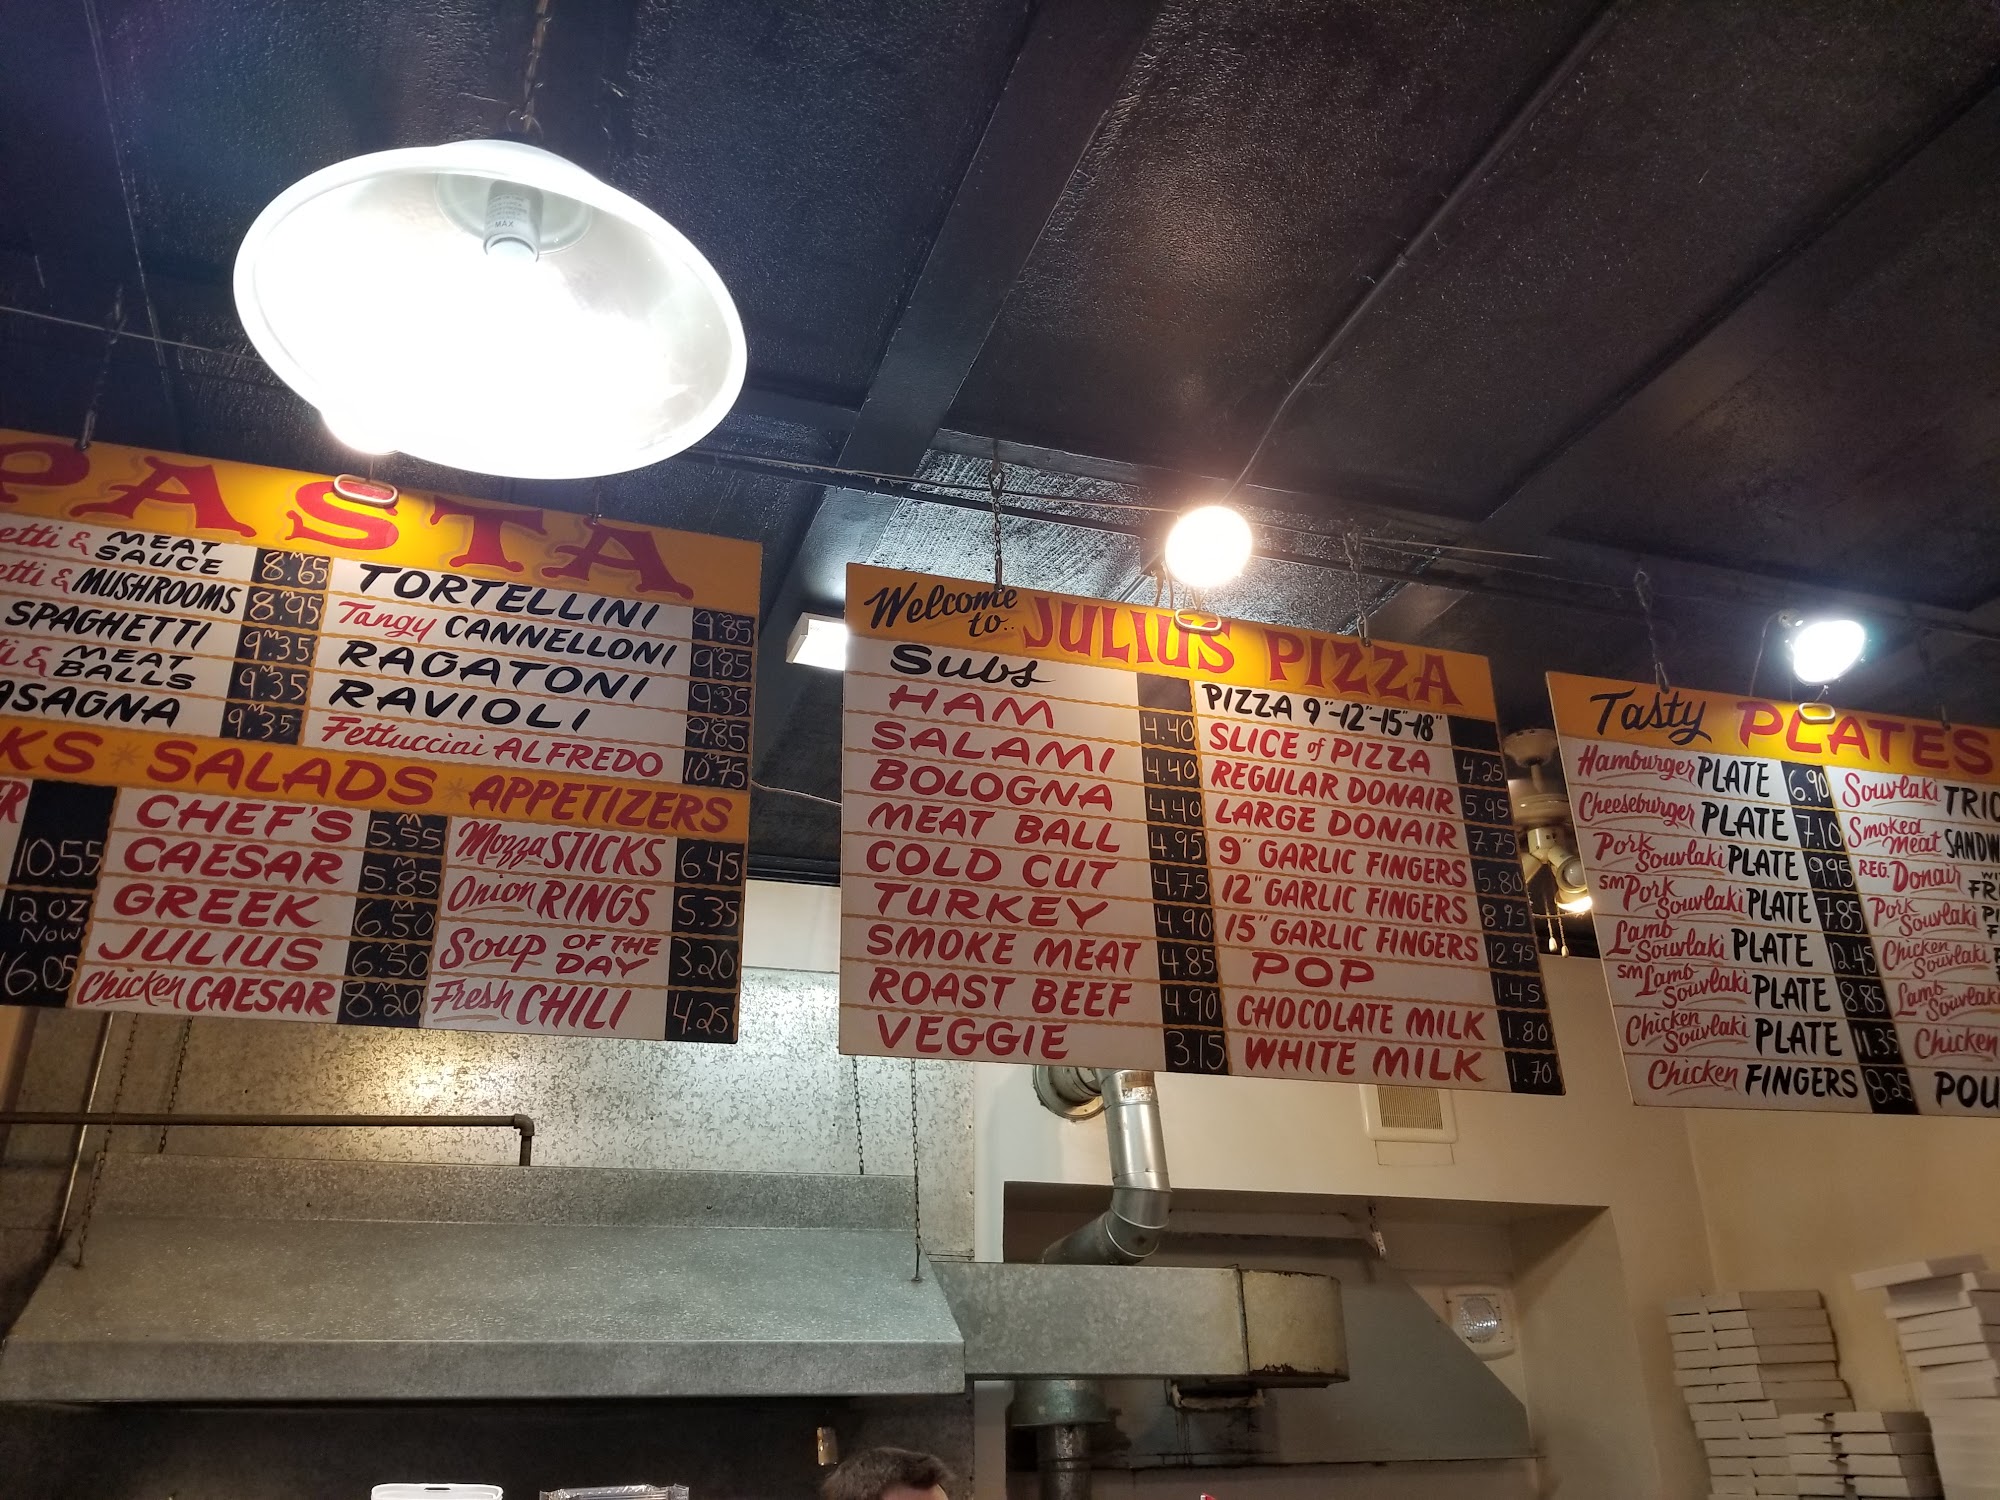 MAX
PASTA
etti & MEAT SAUCE 8.65
etti & MUSHROOMS 8.95
SPAGHETTI 9.35
ti & MEAT BALLS 9.35
ASAGNA 9.35
TORTELLINI 9.85
Tangy CANNELLONI 9.85
RAGATONI 9.35
RAVIOLI 9.85
Fettuccini ALFREDO 10.75
KS * SALADS * APPETIZERS
ER
10.55
12 OZ
NOW
16.05
CHEF'S 5.55
CAESAR 5.85
GREEK 6.50
JULIUS 6.50
Chicken CAESAR 8.20
Mozza STICKS 6.45
Onion RINGS 5.35
Soup OF THE DAY 3.20
Fresh CHILI 4.25
Welcome to.. JULIUS PIZZA
Subs
HAM 4.40
SALAMI 4.40
BOLOGNA 4.40
MEAT BALL 4.95
COLD CUT 4.75
TURKEY 4.90
SMOKE MEAT 4.85
ROAST BEEF 4.90
VEGGIE 3.15
PIZZA 9"-12"-15"-18"
SLICE of PIZZA 4.25
REGULAR DONAIR 5.95
LARGE DONAIR 7.75
9" GARLIC FINGERS 5.80
12" GARLIC FINGERS 8.95
15" GARLIC FINGERS 12.95
POP 1.45
CHOCOLATE MILK 1.80
WHITE MILK 1.70
Tasty PLATES
Hamburger PLATE 6.90
Cheeseburger PLATE 7.10
Pork Souvlaki PLATE 9.95
SM Pork Souvlaki PLATE 7.85
Lamb Souvlaki PLATE 12.45
SM Lamb Souvlaki PLATE 8.85
Chicken Souvlaki PLATE 11.35
Chicken FINGERS 8.25
Souvlaki TRIO
Smoked Meat SANDW
REG. Donair WI FR
Pork Souvlaki
Chicken Souvlaki
Lamb Souvlaki
Chicken
POU